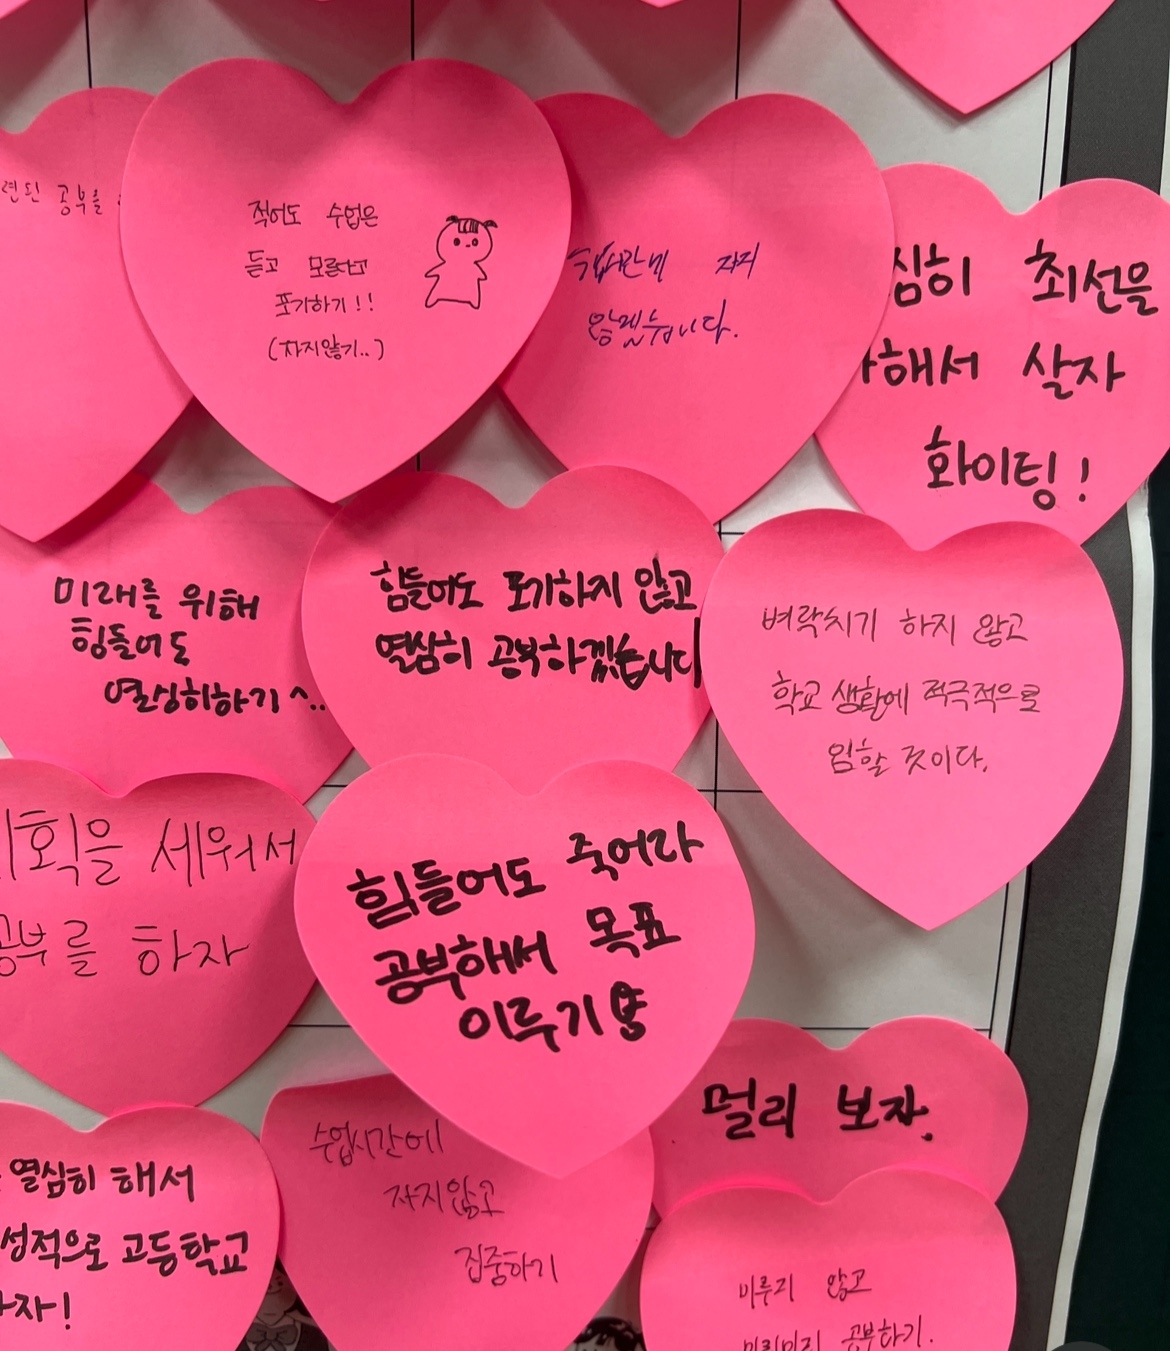 련된 공부를
적어도 수업은
듣고 모른다고
포기하기!!
(자지않기..)
수업시간에 자지
않겠습니다.
심히 최선을
해서 살자
화이팅!
미래를 위해
힘들어도
열심히하기^..
힘들어도 포기하지 않고
열심히 공부하겠습니다
벼락치기 하지 않고
학교 생활에 적극적으로
임할 것이다.
획을 세워서
공부를 하자
힘들어도 죽어라
공부해서 목표
이루기
멀리 보자.
열심히 해서
성적으로 고등학교
자!
수업시간에
자지않고
집중하기
미루지 않고
미리미리 공부하기.